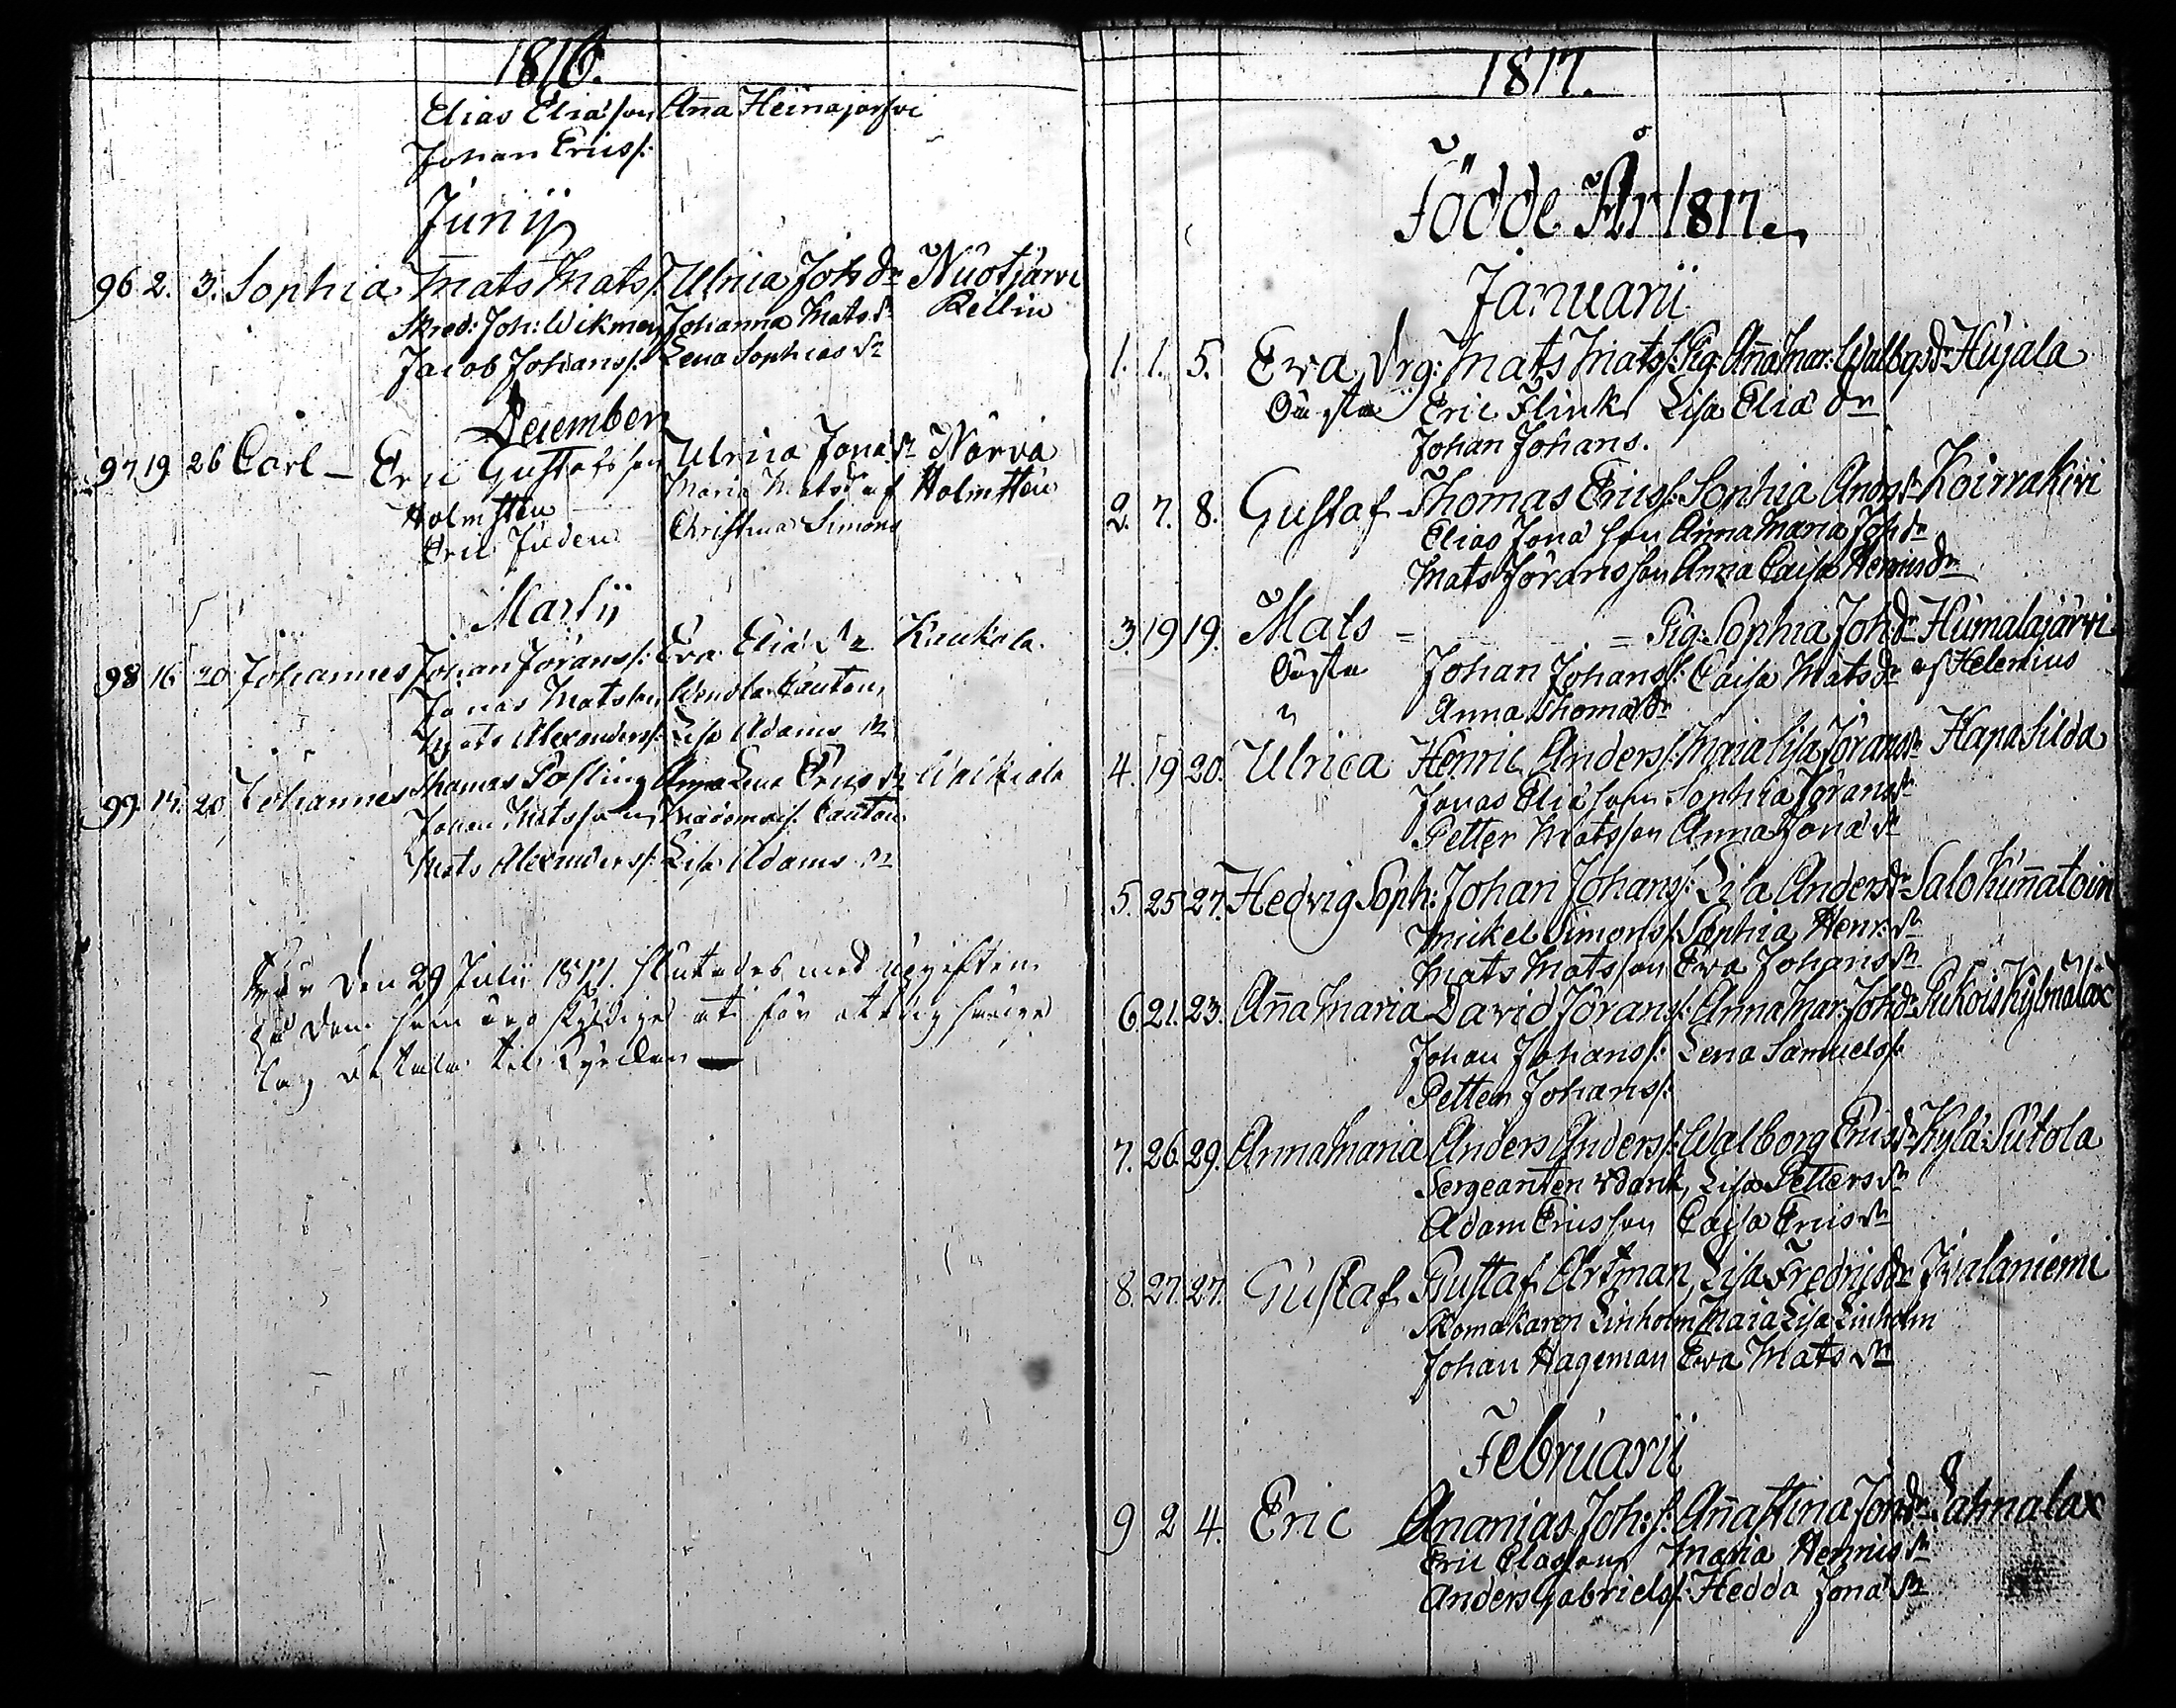 1816.
Elias Eliasson Aña Heinajarfvi
Johan Erics/:
Junii
96 2. 3. Sophia Mats Mats/: Ulrica Joh dr Nuotjärvi
Skred: Joh: Wikman Johanna Mats dr Rellin
Jacob Johans/: Lena Sophias dr
December
97 19 26 Carl – Eric Gustafsson Ulrica Jona dr Norvio
Holmstén Maria Mats d. af Holmstén
Eric Juden Christina Simons
Martii
98 16 20 Johannes Johan Jörans/: Eva Elia dr Kaukola.
Jonas Matsson Wendla Cauton
Mats Alexanders/: Lisa Adams dr
99 17. 20 Johannes Thomas Posling Anna Lena Erics dr
Johan Matsson Cauton
Mats Alexanders/: Lisa Adams dr
den 29 Julii 1817. slutades med uppgiften
på dem som äro skyldige at för
betala til Kyrckan —
1817.
Födde År 1817.
Januarii
1. 1. 5. Eva Drg: Mats Mats/: Pig. Aña Mar: Walbgs dr Hujala
Oägta Eric Flink Lisa Elia dr
Johan Johans.
2. 7. 8. Gustaf Thomas Erics/: Sophia Anders dr Koirrakivi
Elias Jona son Anna Maria Joh dr
Mats Jöransson Anna Caisa Henrics dr
3. 19 19. Mats – = Pig. Sophia Joh dr Humalajärvi
Oägta Johan Johans/: Caisa Mats dr af Helenius
" Anna Thomas dr
4. 19 20. Ulrica Henric Anders/: Maria Lisa Jörans dr Hapasilda
Jonas Elia son Sophia Jörans dr
Petter Matsson Anna Jona dr
5. 25 27. Hedvig Soph: Johan Johans/: Lisa Anders dr Salo Kuñatoin
Mickel Simons/: Sophia Henr: dr
Mats Matsson Eva Johans dr
6. 21. 23. Aña Maria David Jörans/: Anna Mar: Joh dr
Johan Johans/: Lena Samuels/:
Petter Johans/:
7. 26. 29. Anna Maria Anders Anders/: Walborg Erics dr Kylä: Sutola
Sergeanten Lisa Petters dr
Adam Ericsson Caisa Erics dr
8. 27. 27. Gustaf Gustaf Artman, Lisa Fredrics dr Ivalaniemi
Skomakaren Linholm Maria Lisa Linholm
Johan Hageman Eva Mats dr
Februarii
9 2 4. Eric Ananias Joh: s/: Aña Stina Jon dr Salmalax
Eric Classon Maria Henrics dr
Anders Gabriels/: Hedda Jona dr